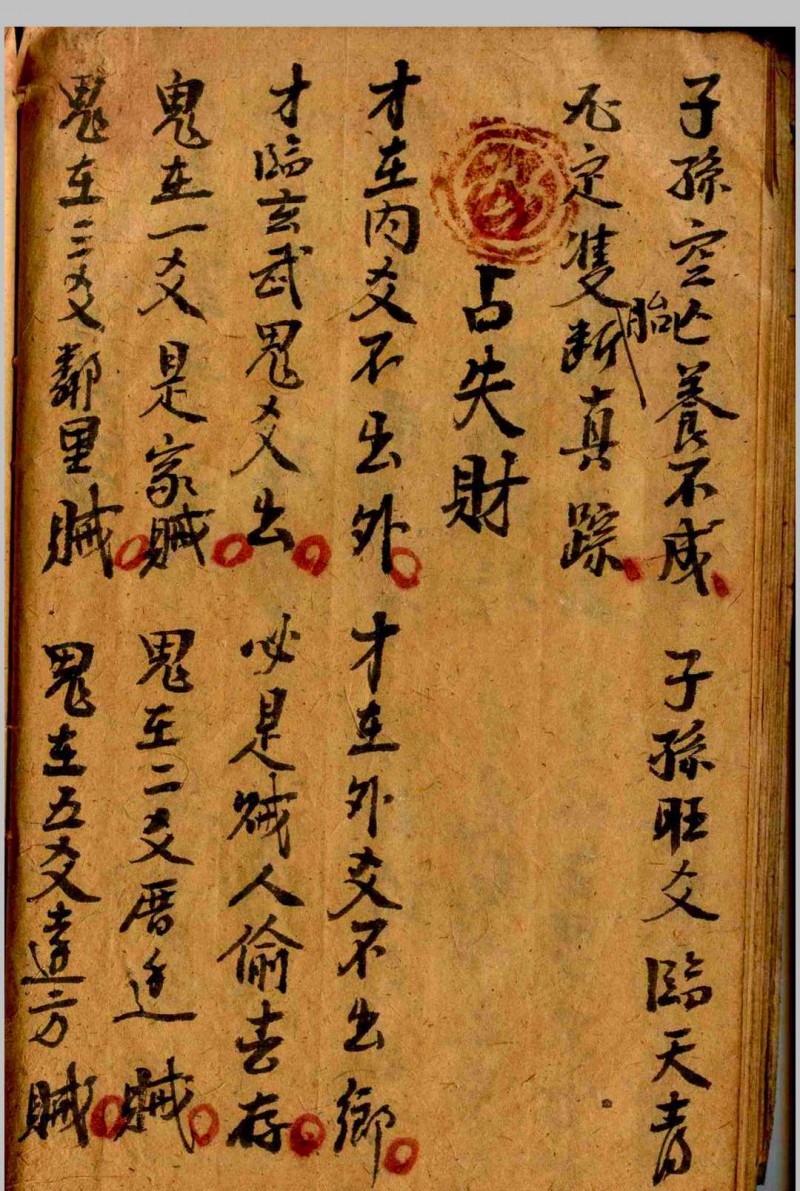 子孫空亡養不成 子孫旺爻臨天青
定雙胎断真踪
占失財
才在内爻不出外 才在外爻不出鄉
才臨玄武鬼爻出 必是贼人偷去存
鬼在一爻是家贼 鬼在二爻厝边贼
鬼在三爻鄰里贼 鬼在五爻遠方贼